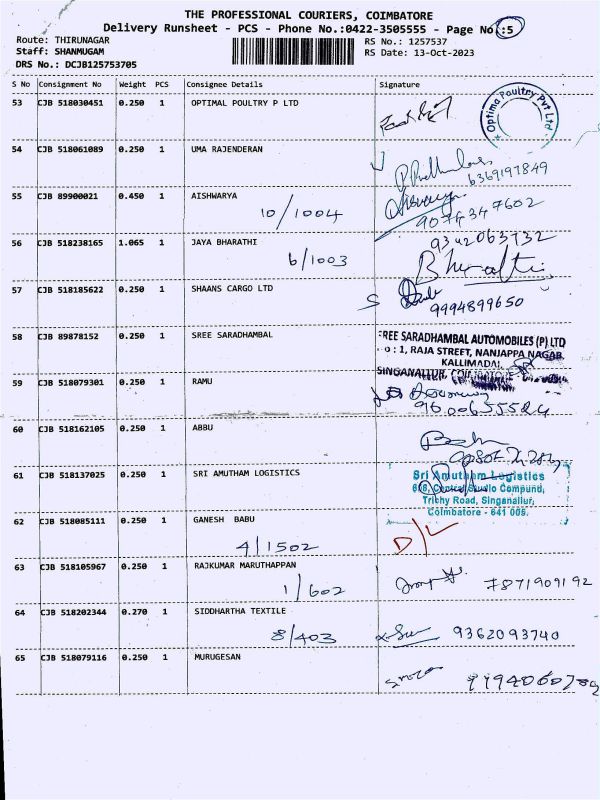 THE PROFESSIONAL COURIERS, COIMBATORE
Delivery Runsheet - PCS - Phone No.:0422-3505555 - Page No.:5
Route: THIRUNAGAR RS No.: 1257537
Staff: SHANMUGAM RS Date: 13-Oct-2023
DRS No.: DCJB125753705
S No Consignment No Weight PCS Consignee Details Signature
53 CJB 518030451 0.250 1 OPTIMAL POULTRY P LTD
Optima Poultry Pvt Ltd
54 CJB 518061089 0.250 1 UMA RAJENDERAN
6369197849
55 CJB 89900021 0.450 1 AISHWARYA
10/1004 9074347602
56 CJB 518238165 1.065 1 JAYA BHARATHI 9342063732
6/1003 Bharathi
57 CJB 518185622 0.250 1 SHAANS CARGO LTD
9994899650
58 CJB 89878152 0.250 1 SREE SARADHAMBAL
REE SARADHAMBAL AUTOMOBILES (P) LTD
1, RAJA STREET, NANJAPPA NAGAR
KALLIMADAI,
SINGANALLUR,
59 CJB 518079301 0.250 1 RAMU
60 CJB 518162105 0.250 1 ABBU
61 CJB 518137025 0.250 1 SRI AMUTHAM LOGISTICS
Sri Amutham Logistics
Central Studio Compund,
Trichy Road, Singanallur,
Coimbatore - 641 005.
62 CJB 518085111 0.250 1 GANESH BABU
4/1502 D/L
63 CJB 518105967 0.250 1 RAJKUMAR MARUTHAPPAN
1/602 7871909192
64 CJB 518202344 0.270 1 SIDDHARTHA TEXTILE
8/403 9362093740
65 CJB 518079116 0.250 1 MURUGESAN